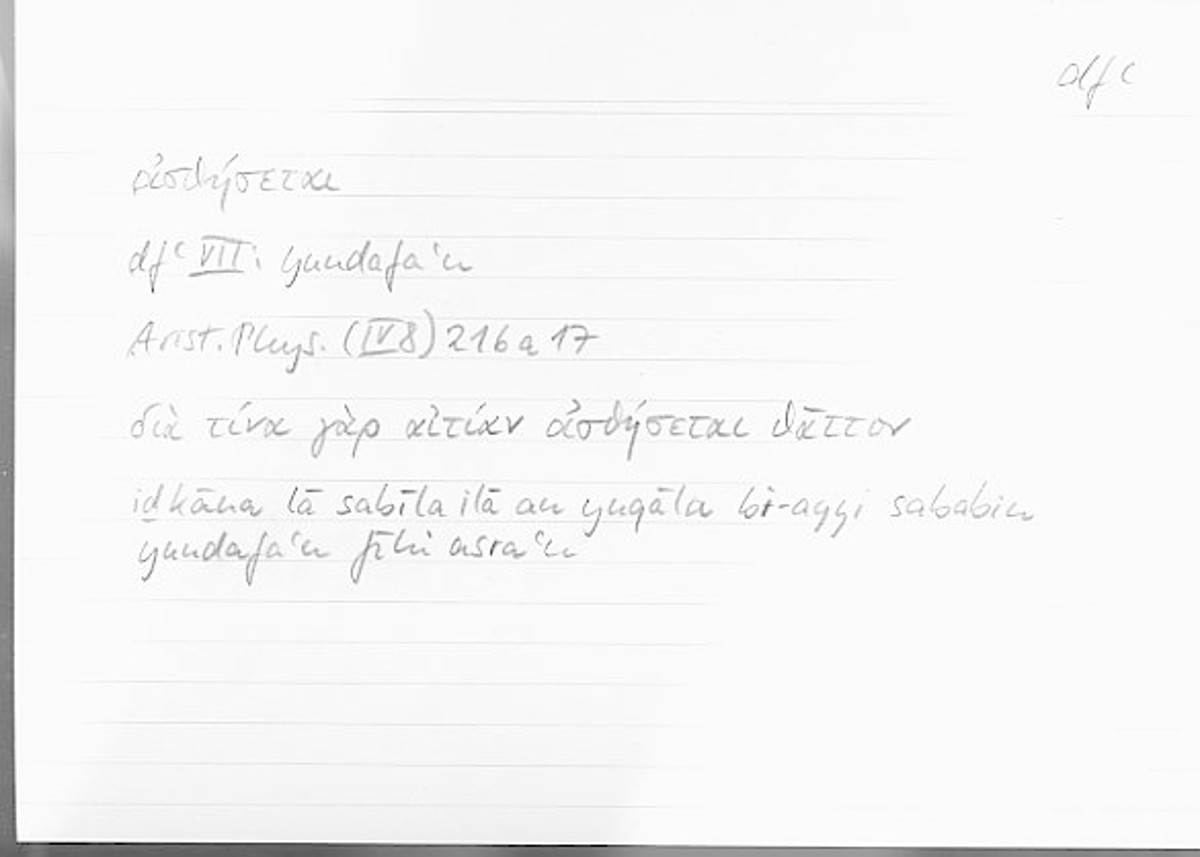 dfʿ
ὠσθήσεται
dfʿ VII: yundafaʿu
Arist. Phys. (IV 8) 216 a 17
διὰ τίνα γὰρ αἰτίαν ὠσθήσεται θᾶττον
iḏ kāna lā sabīla ilā an yuqāla bi-ayyi sababin
yundafaʿu fīhi asraʿu